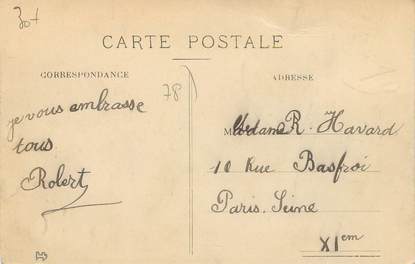 30+
CARTE POSTALE
CORRESPONDANCE
78
je vous embrasse
tous
Robert
ADRESSE
Madame R. Havard
10 Rue Basfroi
Paris. Seine
XIem